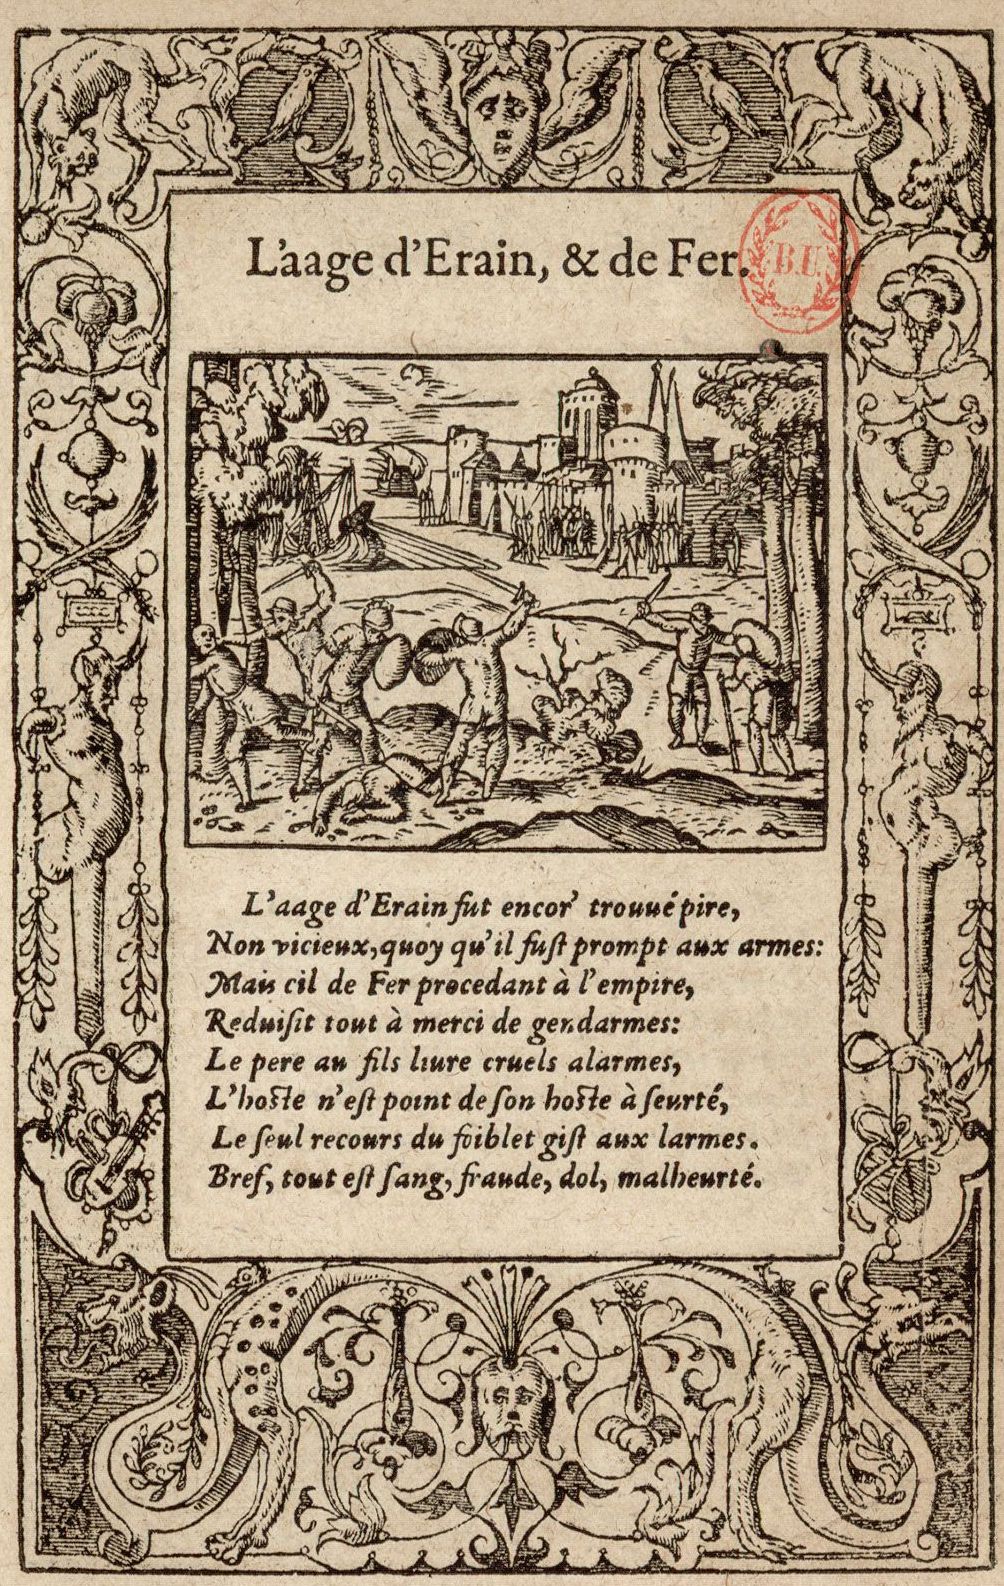 L'aage d'Erain, & de Fer.
B.U.
L'aage d'Erain fut encor' trouué pire,
Non vicieux, quoy qu'il fuſt prompt aux armes:
Mais cil de Fer procedant à l'empire,
Reduiſit tout à merci de gendarmes:
Le pere au fils liure cruels alarmes,
L'hoſte n'eſt point de ſon hoſte à ſeurté,
Le ſeul recours du foiblet giſt aux larmes.
Bref, tout eſt ſang, fraude, dol, malheurté.